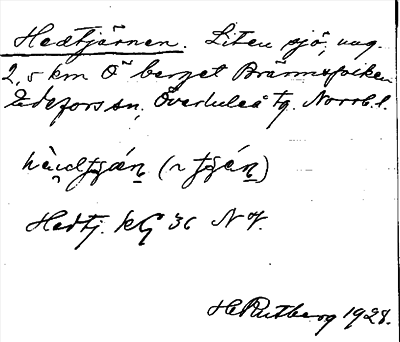 Hedtjärnen. Liten sjö, ung.
2,5 km Ö berget Brännsfolken
Edefors sn, Överluleå tg. Norrb. l.
Hedtj. kG 36 NV.
H. Rutberg 1928.